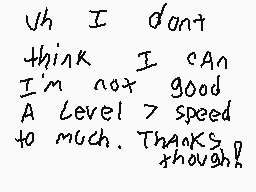 uh I dont
think I cAn
I'm not good
A Level 7 speed
to much. THANKS
though!